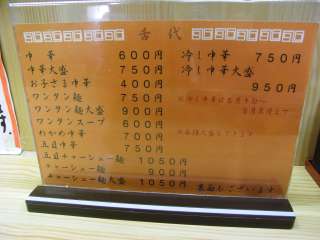 舌代
中華 600円
中華大盛 750円
お子さま中華 400円
ワンタン麺 750円
ワンタン麺大盛 900円
ワンタンスープ 600円
わかめ中華 700円
五目中華 750円
五目チャーシュー麺 1050円
チャーシュー麺 900円
チャーシュー麺大盛 1050円
冷し中華 750円
冷し中華大盛
950円
裏面もございます